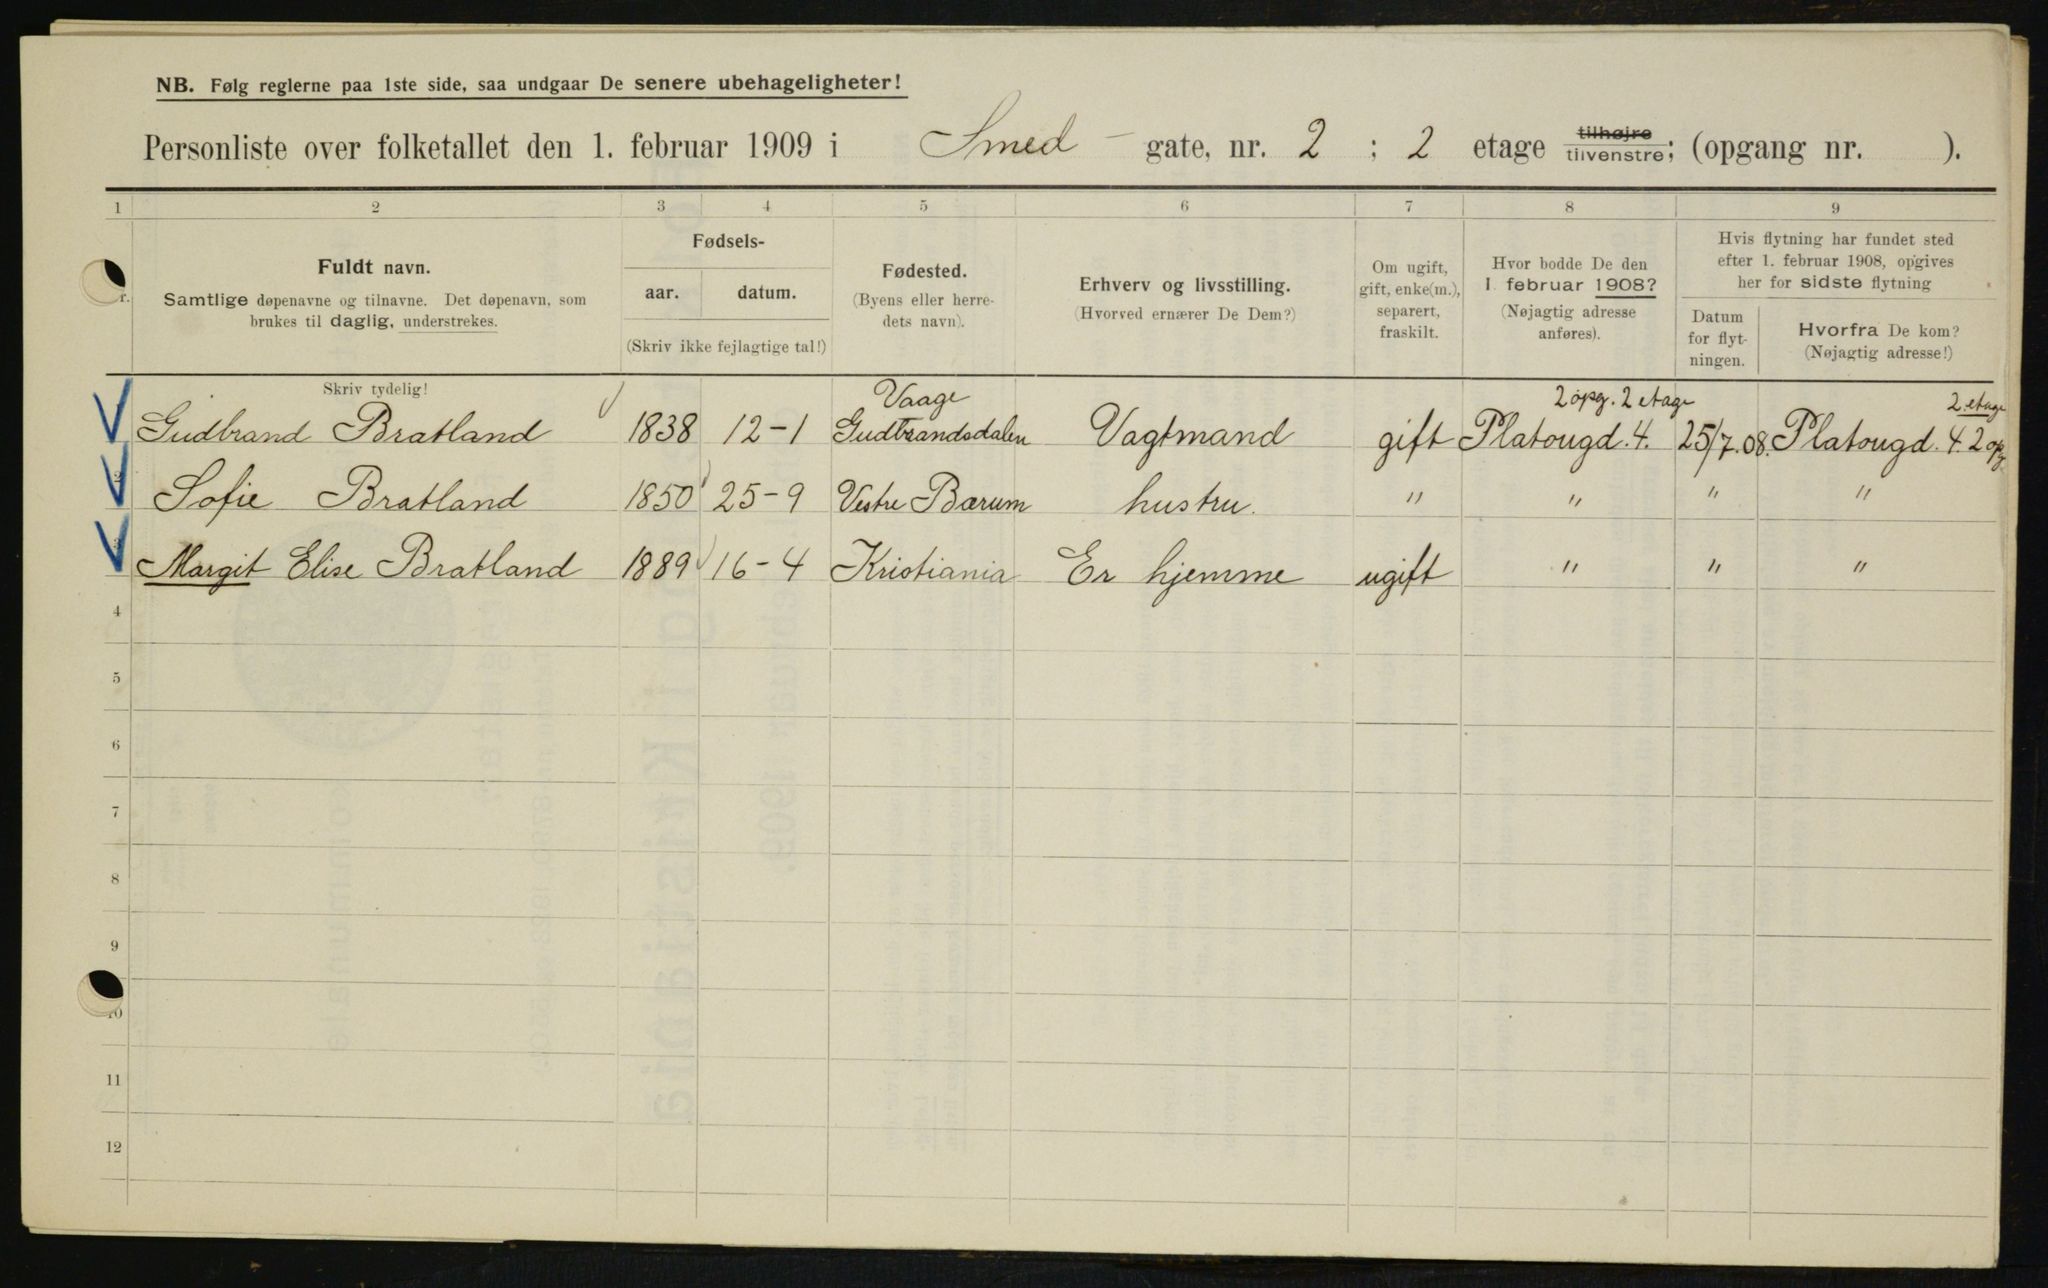 NB. Følg reglerne paa 1ste side, saa undgaar De senere ubehageligheter!
Personliste over folketallet den 1. februar 1909 i Smed - gate, nr. 2 ; 2 etage tilhøjre tilvenstre; (opgang nr. ).
1 2 3 4 5 6 7 8 9
Fuldt navn.
Samtlige døpenavne og tilnavne. Det døpenavn, som
brukes til daglig, understrekes.
Fødsels-
aar. datum.
(Skriv ikke fejlagtige tal!)
Fødested.
(Byens eller herre-
dets navn).
Erhverv og livsstilling.
(Hvorved ernærer De Dem?)
Om ugift,
gift, enke(m.),
separert,
fraskilt.
Hvor bodde De den
1. februar 1908?
(Nøjagtig adresse
anføres).
Hvis flytning har fundet sted
efter 1. februar 1908, opgives
her for sidste flytning
Datum
for flyt-
ningen.
Hvorfra De kom?
(Nøjagtig adresse!)
Skriv tydelig!
Vaage 2 opg. 2 etage 2 etage
Gudbrand Bratland 1838 12-1 Gudbrandsdalen Vagtmand gift Platougd. 4. 25/7.08. Platougd. 4. 2 opg
Sofie Bratland 1850 25-9 Vestre Bærum hustru. " " " "
Margit Elise Bratland 1889 16-4 Kristiania Er hjemme ugift " " "
4
5
6
7
8
9
10
11
12